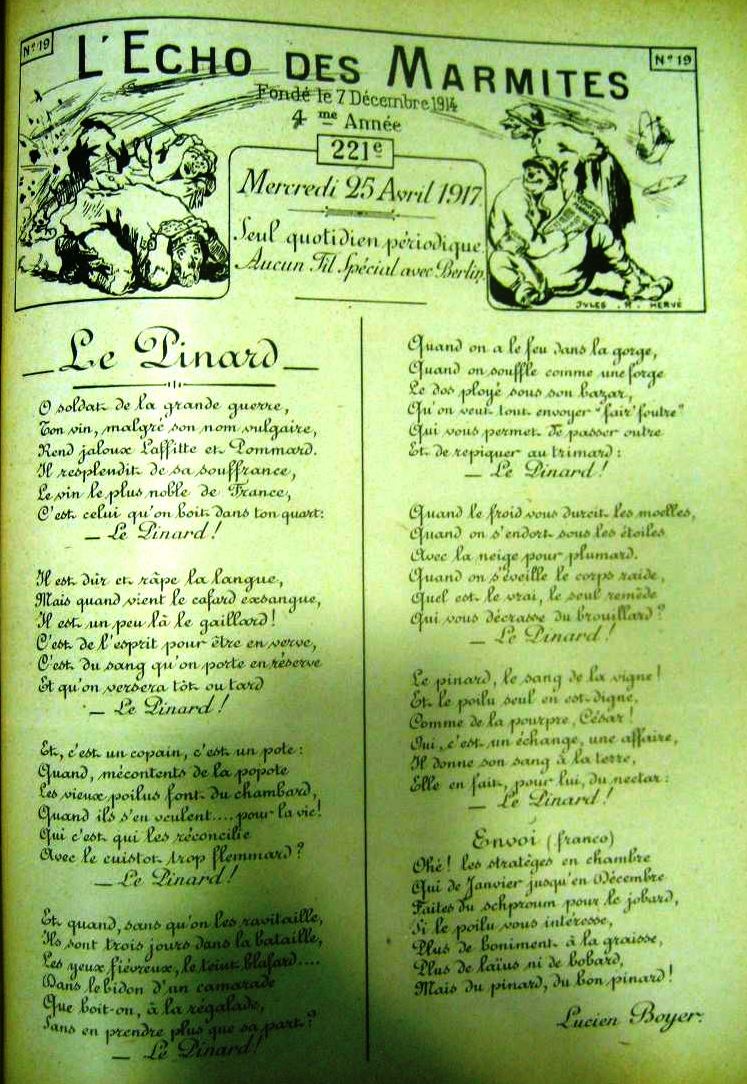 Nº 19
L'ECHO DES MARMITES
Nº 19
Fondé le 7 Décembre 1914
4me Année
221e
Mercredi 25 Avril 1917
Seul quotidien périodique
Aucun Fil Spécial avec Berlin
JULES . A . HERVÉ
— Le Pinard —
O soldat de la grande guerre,
Ton vin, malgré son nom vulgaire,
Rend jaloux Laffitte et Pommard.
Il resplendit de sa souffrance,
Le vin le plus noble de France,
C'est celui qu'on boit dans ton quart:
— Le Pinard!
Il est dur et râpe la langue,
Mais quand vient le cafard exsangue,
Il est un peu là le gaillard!
C'est de l'esprit pour être en verve,
C'est du sang qu'on porte en réserve
Et qu'on versera tôt ou tard
— Le Pinard!
Et, c'est un copain, c'est un pote:
Quand, mécontents de la popote
Les vieux poilus font du chambard,
Quand ils s'en veulent.... pour la vie!
Qui c'est qui les réconcilie
Avec le cuistot trop flemmard?
— Le Pinard!
Et quand, sans qu'on les ravitaille,
Ils sont trois jours dans la bataille,
Les yeux fiévreux, le teint blafard....
Dans le bidon d'un camarade
Que boit-on, à la régalade,
Sans en prendre plus que sa part?
— Le Pinard!
Quand on a le feu dans la gorge,
Quand on souffle comme une forge
Le dos ployé sous son bazar,
Qu'on veut tout envoyer "fair' foutre"
Qui vous permet de passer outre
Et de repiquer au trimard:
— Le Pinard!
Quand le froid vous durcit les moelles,
Quand on s'endort sous les étoiles
Avec la neige pour plumard.
Quand on s'éveille le corps raide,
Quel est le vrai, le seul remède
Qui vous décrasse du brouillard?
— Le Pinard!
Le pinard, le sang de la vigne!
Et le poilu seul en est digne,
Comme de la pourpre, César!
Oui, c'est un échange, une affaire,
Il donne son sang à la terre,
Elle en fait, pour lui, du nectar:
— Le Pinard!
Envoi (franco)
Ohé! les stratèges en chambre
Qui de Janvier jusqu'en Décembre
Faites du schproum pour le jobard,
Si le poilu vous intéresse,
Plus de boniment à la graisse,
Plus de laïus ni de bobard,
Mais du pinard, du bon pinard!
Lucien Boyer.